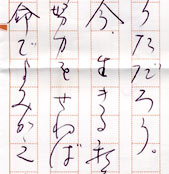 うただろう。
今、生きる
努力をせねば
命でよみがえ